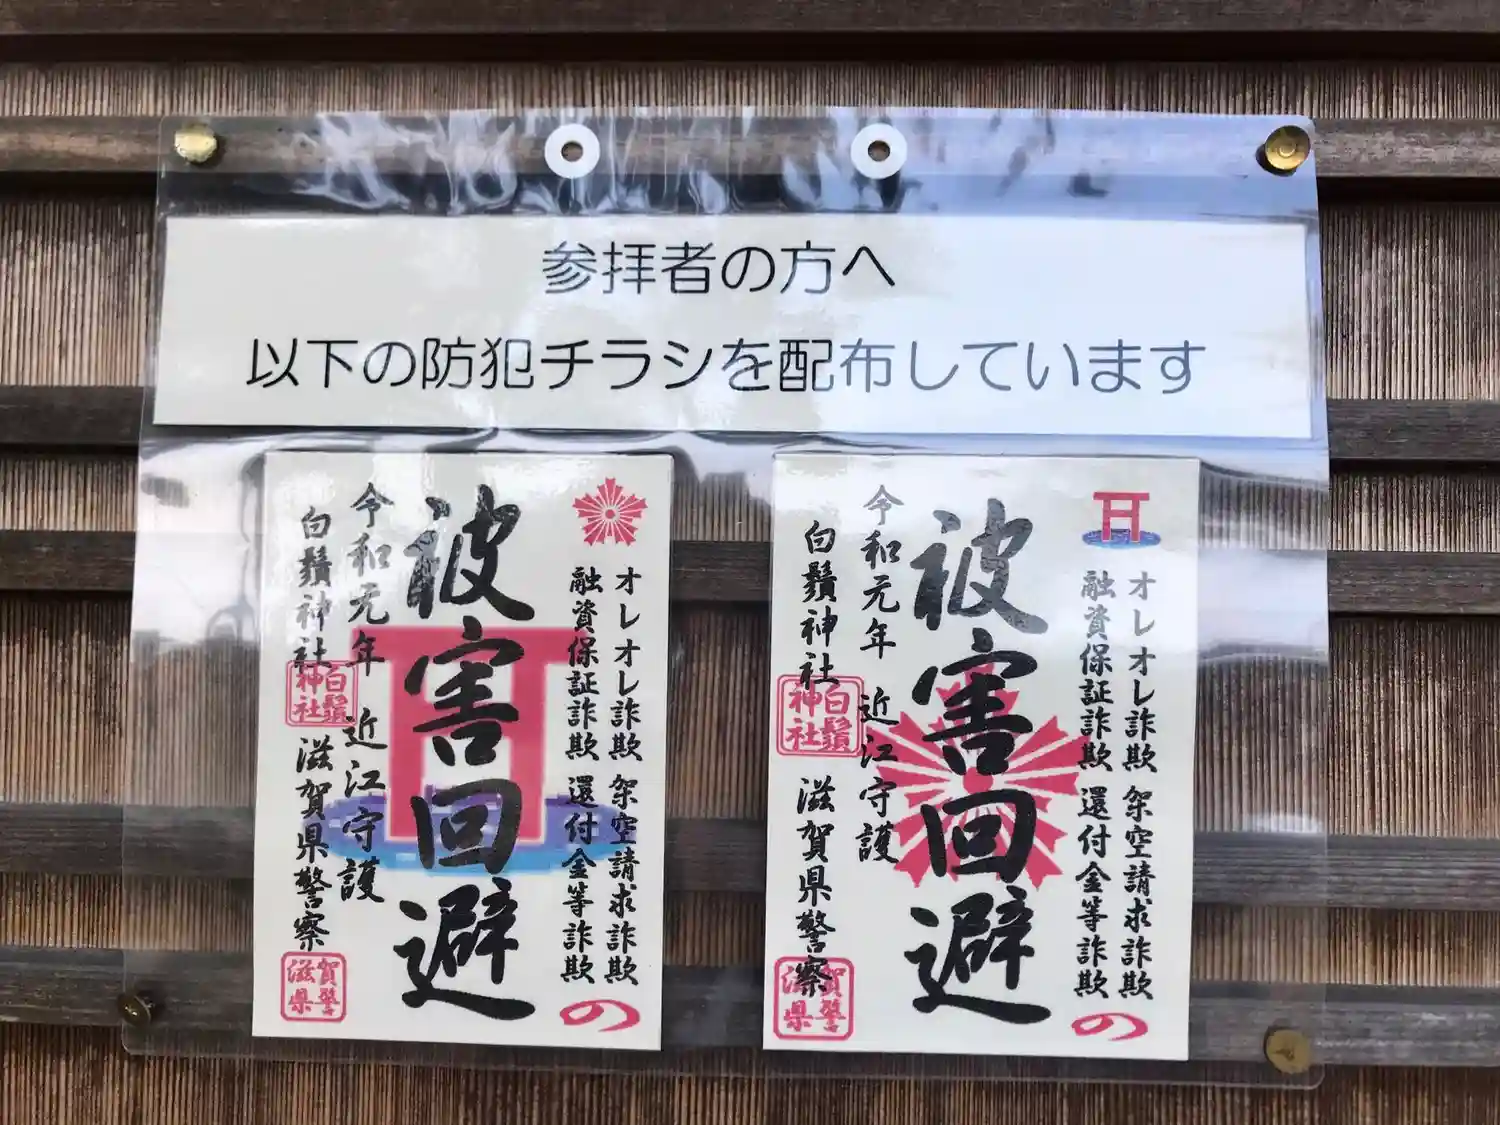 参拝者の方へ
以下の防犯チラシを配布しています
オレオレ詐欺 架空請求詐欺
融資保証詐欺 還付金等詐欺
の
被害回避
令和元年 近江守護
白鬚神社 滋賀県警察
白鬚神社
滋賀県警
オレオレ詐欺 架空請求詐欺
融資保証詐欺 還付金等詐欺
の
被害回避
令和元年 近江守護
白鬚神社 滋賀県警察
白鬚神社
滋賀県警